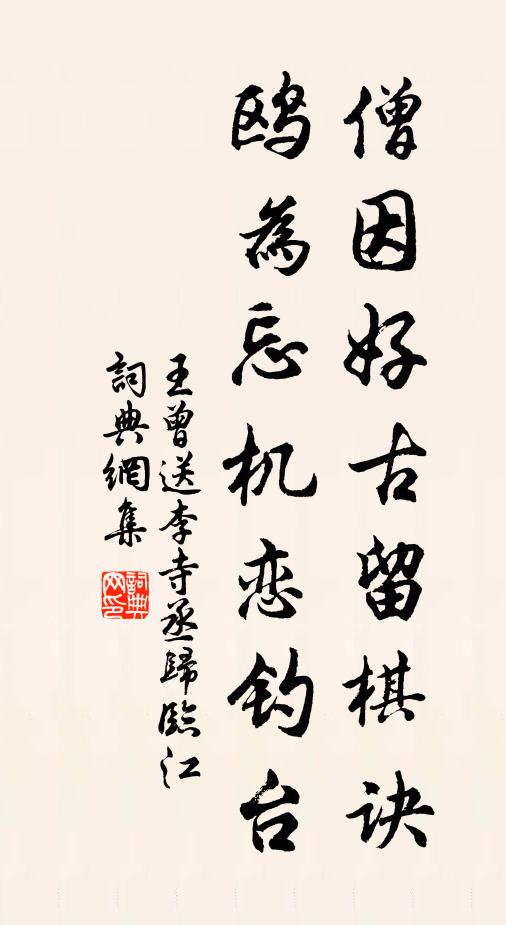 僧因好古留棋诀
鸥為忘机恋钓台
王曾送李寺丞歸臨江
詞典網集
詞典网印